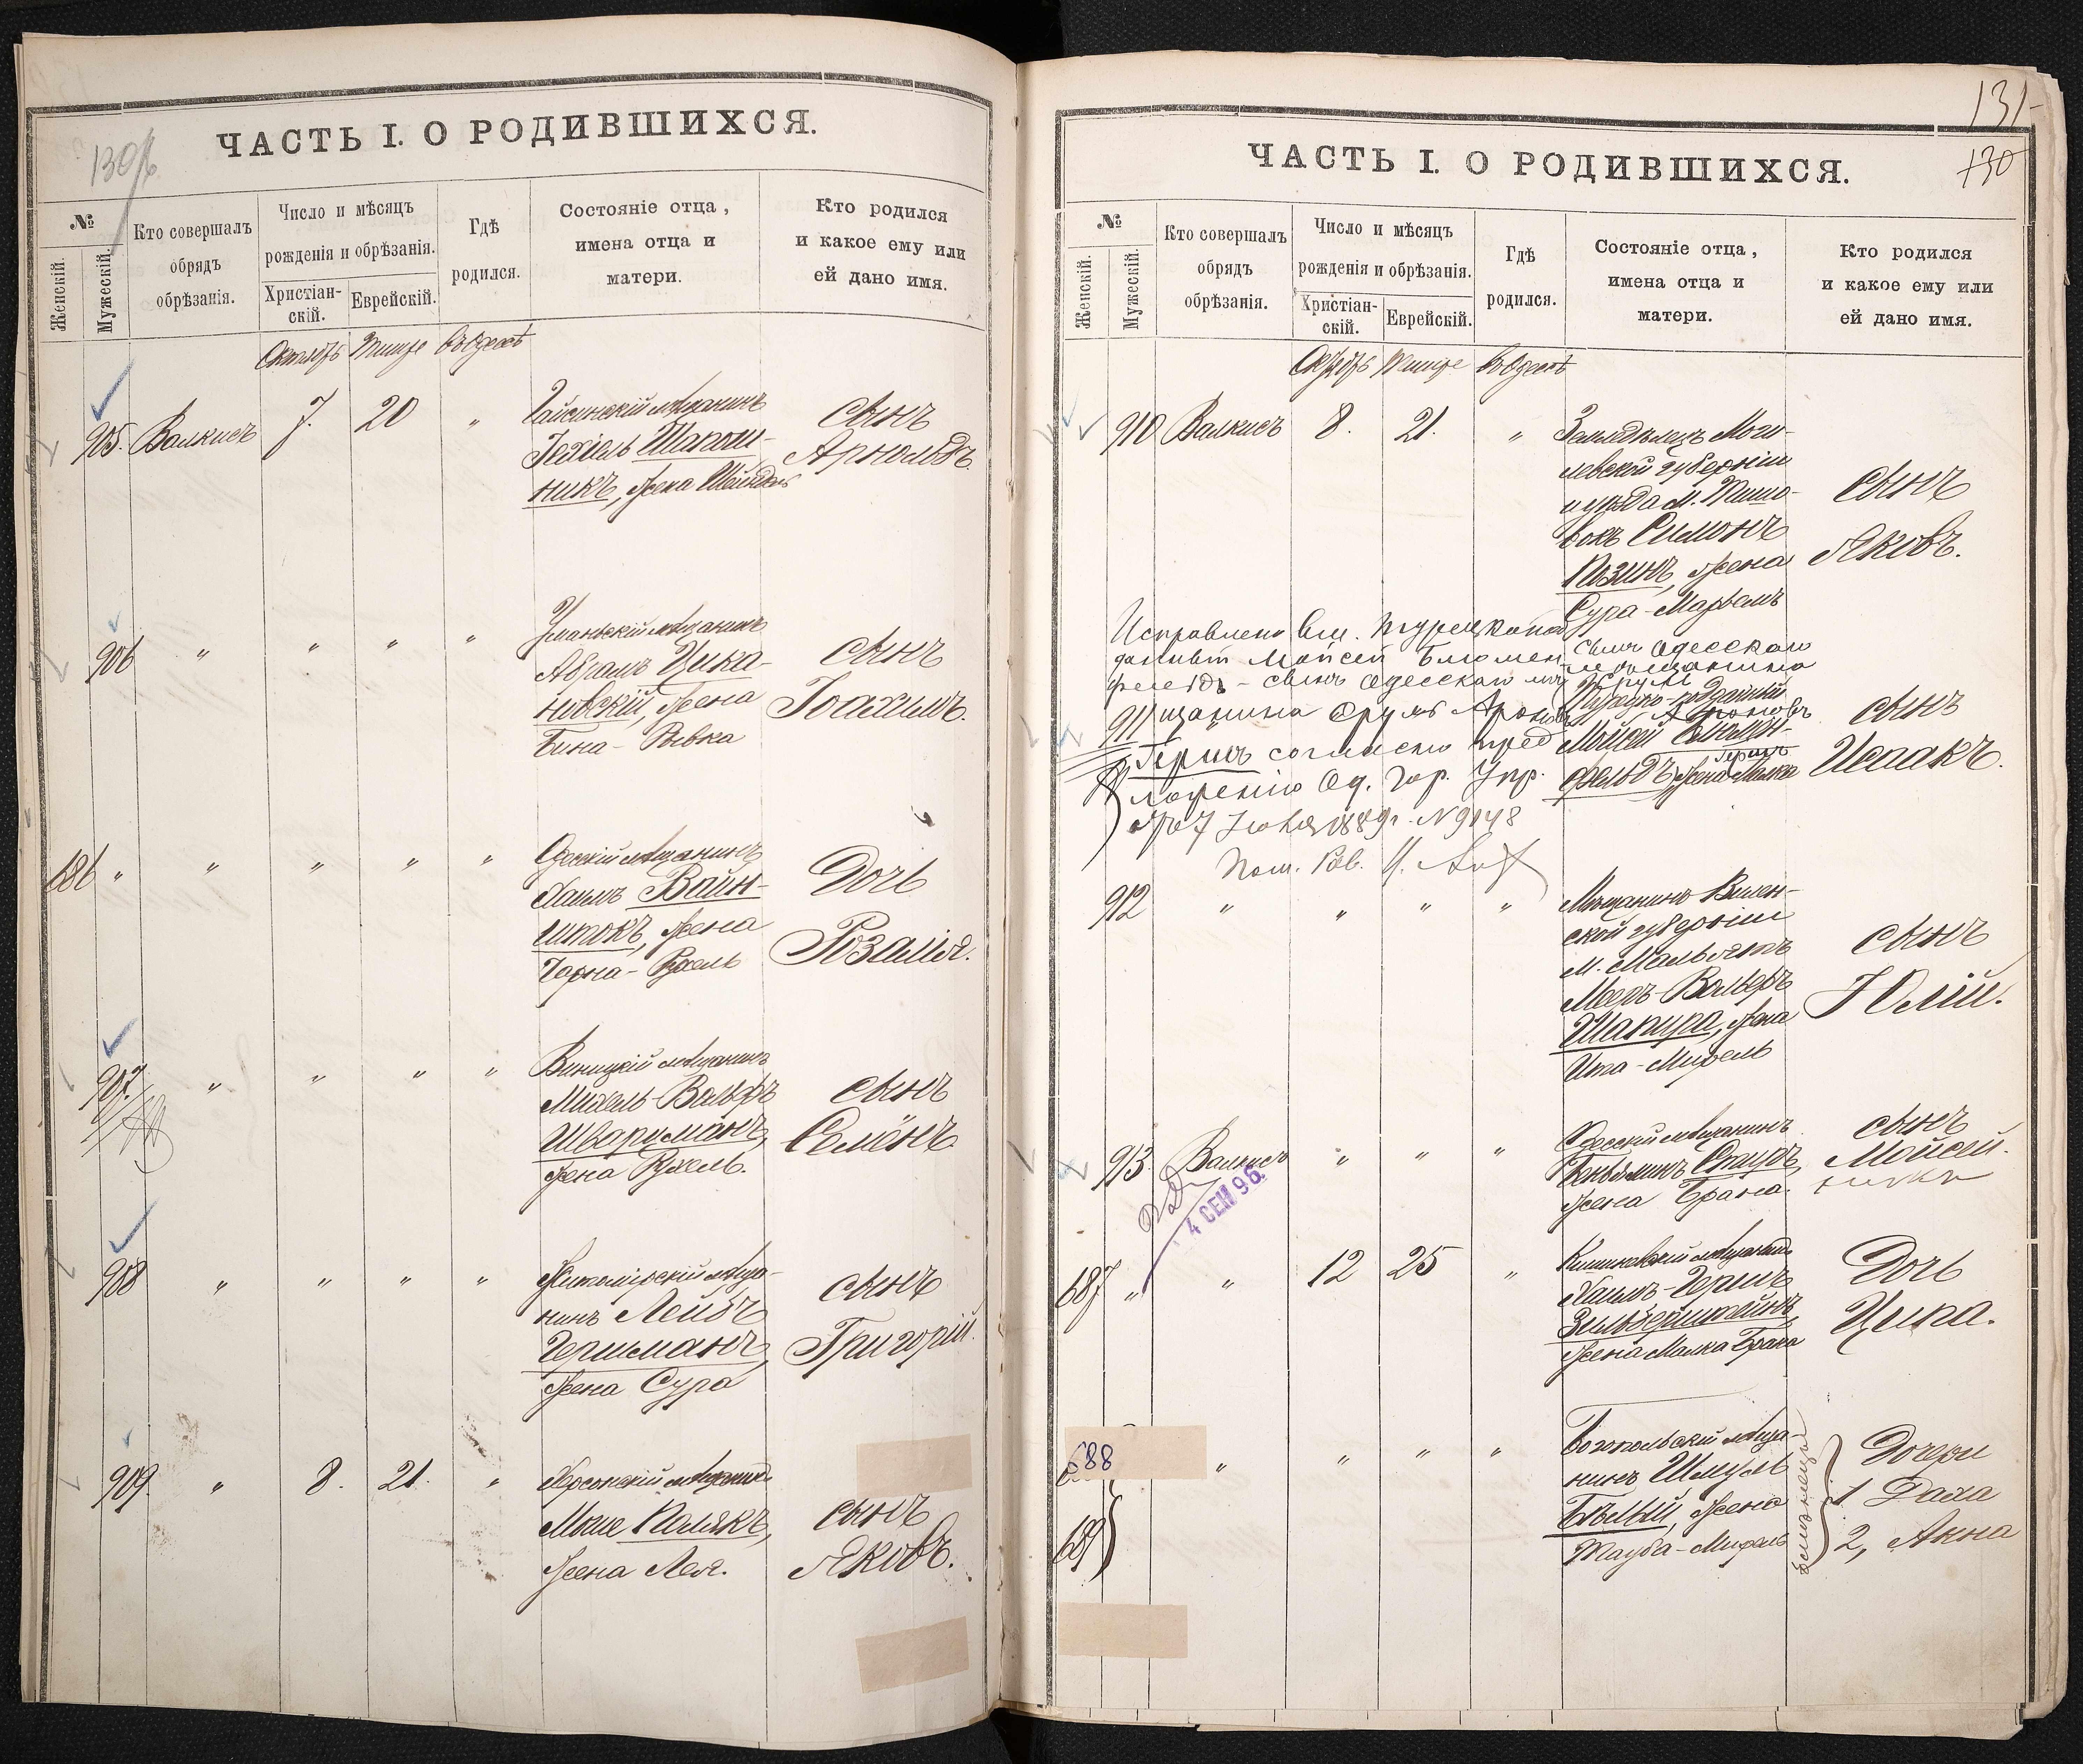 130/б
ЧАСТЬ I. О РОДИВШИХСЯ.
№
Женскій.
Мужескій.
Кто совершалъ
обрядъ
обрѣзанія.
Число и мѣсяцъ
рожденія и обрѣзанія.
Христіан-
скій.
Еврейскій.
Гдѣ
родился.
Состояніе отца,
имена отца и
матери.
Кто родился
и какое ему или
ей дано имя.
Октябрь Тишре въ Одессѣ
905. Валкисъ 7. 20 "
Гайсинскій мѣщанинъ
Іехіель Шапош-
никъ, жена Шейндля
сынъ
Арнольдъ.
906 " " " "
Уманьскій мѣщанинъ
Абрамъ Цика-
новскій, жена
Бина-Ривка
сынъ
Іоахимъ.
686 " " " " "
Одесскій мѣщанинъ
Хаимъ Вайн-
штокъ, жена
Черна-Рухель
Дочь
Розалія.
907. " " " "
Виницкій мѣщанинъ
Михель-Вольфъ
Шварцманъ,
жена Рухель.
сынъ
Семёнъ.
908 " " " "
Житомірскій мѣща-
нинъ Лейбъ
Гершманъ,
жена Сура
сынъ
Григорій.
909. " 8. 21. "
Херсонскій мѣщанинъ
Моте Полякъ,
жена Лея.
сынъ
Яковъ.
131
130
ЧАСТЬ I. О РОДИВШИХСЯ.
№
Женскій.
Мужескій.
Кто совершалъ
обрядъ
обрѣзанія.
Число и мѣсяцъ
рожденія и обрѣзанія.
Христіан-
скій.
Еврейскій.
Гдѣ
родился.
Состояніе отца,
имена отца и
матери.
Кто родился
и какое ему или
ей дано имя.
Октябрь Тишре въ Одессѣ
910 Валкисъ 8. 21. "
Земледѣлецъ Моги-
левской губерніи
и уѣзда м.
Симонъ
Позинъ, жена
Сура-Марьемъ
сынъ
Яковъ.
Исправлено вм. турецкопод
данный Мойсей Блюмен-
фельдъ - сынъ одесскаго мѣ
щанина Сруль Ароновъ
Гершъ согласно пред
ложенію Од. Гор. Упр.
отъ 7 Іюня 1889 г. N 9148
Пом. Рав.
911
сынъ одесскаго
мѣщанина
Сруль
Турецко-подданный
Ароновъ
Мойсей Блюмен-
Гершъ
фельдъ, жена Малка
сынъ
Исаакъ.
912 " " " "
Мѣщанинъ Вилен-
ской губерніи
м.
Мееръ-Вольфъ
Шапира, жена
Ита-Мирель
сынъ
Юлій.
913. Валкисъ " " "
4 СЕН 96
Одесскій мѣщанинъ
Беньяминъ,
жена Брана.
сынъ
Мойсей.
687 " " 12 25 "
Кишиневскій мѣщанинъ
Хаимъ-Гершъ
Зильберштейнъ,
жена Малка Брана
Дочь
Ципа.
688 " " " "
689
Богопольскій мѣща-
нинъ Шмуль
Бѣлый, жена
Тауба-Мирель
близнецы
Дочери
1 Раха
2, Акна